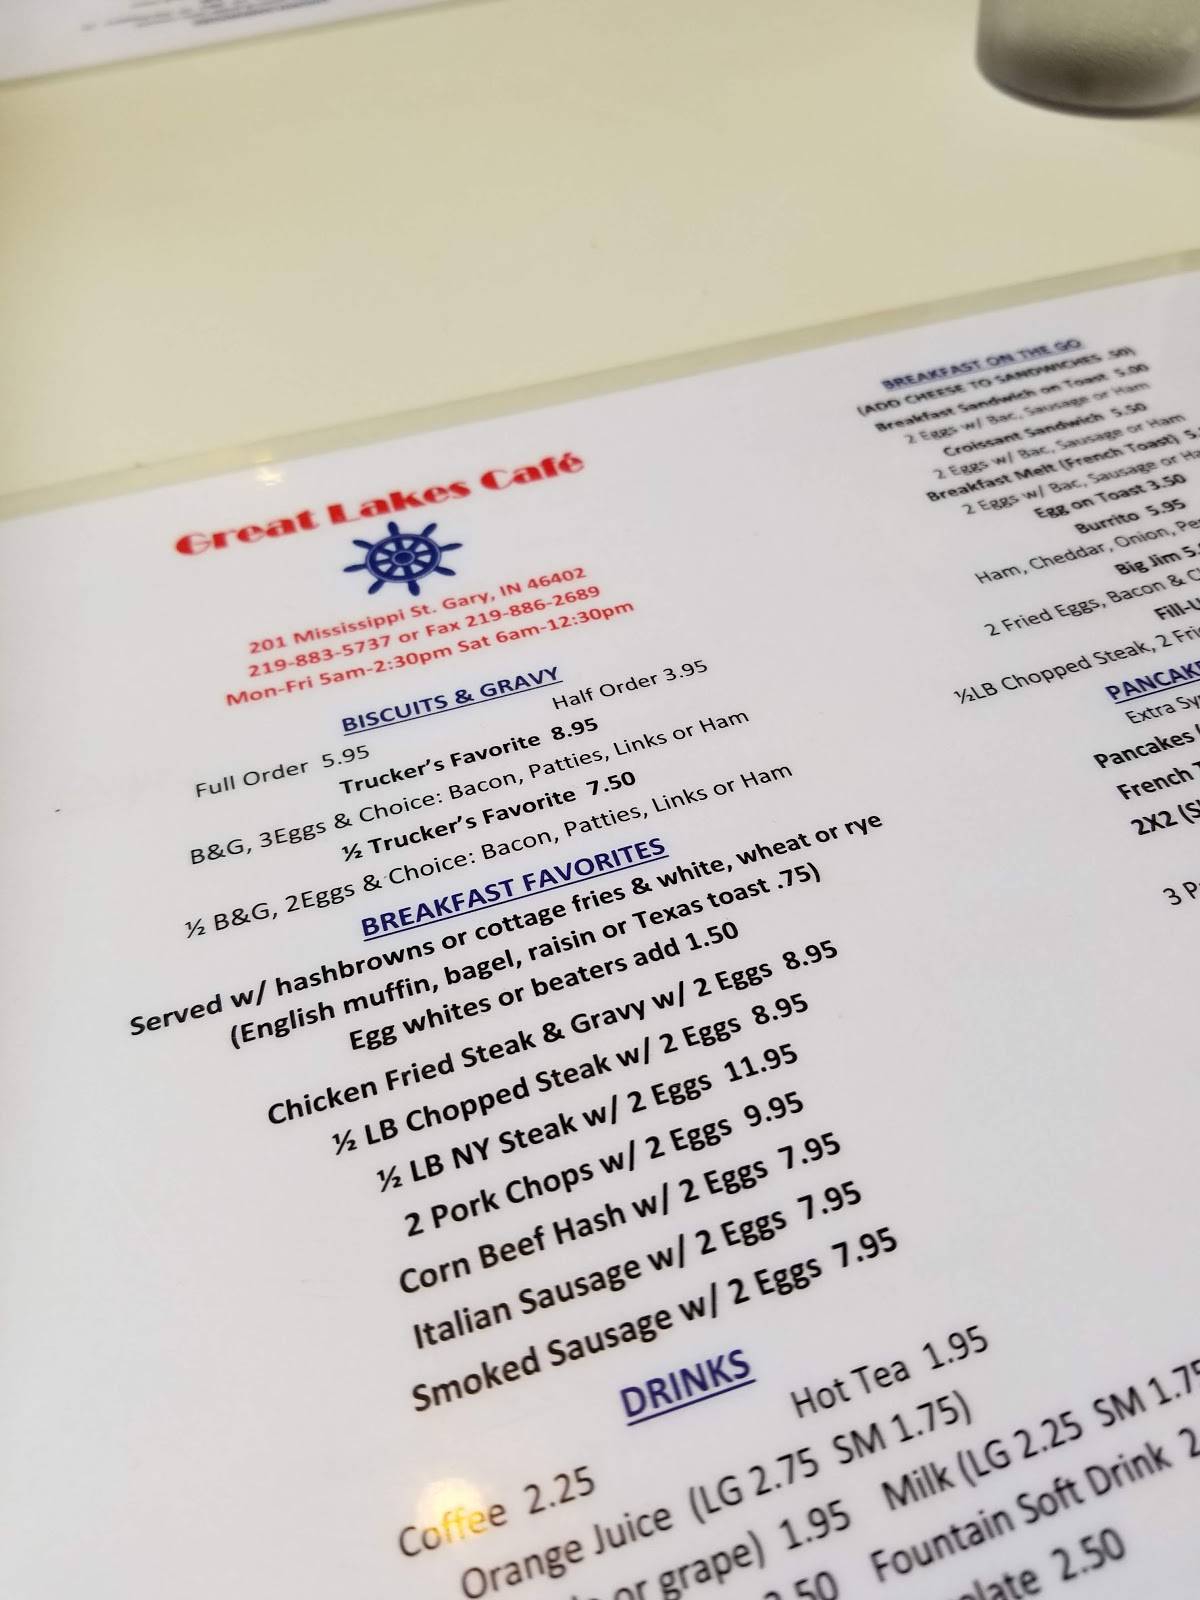 Great Lakes Café
201 Mississippi St. Gary, IN 46402
219-883-5737 or Fax 219-886-2689
Mon-Fri 5am-2:30pm Sat 6am-12:30pm
BISCUITS & GRAVY
Full Order 5.95 Half Order 3.95
Trucker's Favorite 8.95
B&G, 3Eggs & Choice: Bacon, Patties, Links or Ham
½ Trucker's Favorite 7.50
½ B&G, 2Eggs & Choice: Bacon, Patties, Links or Ham
BREAKFAST FAVORITES
Served w/ hashbrowns or cottage fries & white, wheat or rye
(English muffin, bagel, raisin or Texas toast .75)
Egg whites or beaters add 1.50
Chicken Fried Steak & Gravy w/ 2 Eggs 8.95
½ LB Chopped Steak w/ 2 Eggs 8.95
½ LB NY Steak w/ 2 Eggs 11.95
2 Pork Chops w/ 2 Eggs 9.95
Corn Beef Hash w/ 2 Eggs 7.95
Italian Sausage w/ 2 Eggs 7.95
Smoked Sausage w/ 2 Eggs 7.95
DRINKS
Coffee 2.25 Hot Tea 1.95
Orange Juice (LG 2.75 SM 1.75)
or grape) 1.95 Milk (LG 2.25 SM 1.75
.50 Fountain Soft Drink
2.50
BREAKFAST ON THE GO
(ADD CHEESE TO SANDWICHES .50)
Breakfast Sandwich on Toast 5.00
2 Eggs w/ Bac, Sausage or Ham
Croissant Sandwich 5.50
2 Eggs w/ Bac, Sausage or Ham
Breakfast Melt (French Toast) 5.
2 Eggs w/ Bac, Sausage or Ha
Egg on Toast 3.50
Burrito 5.95
Ham, Cheddar, Onion, Pe
Big Jim 5.
2 Fried Eggs, Bacon & C
Fill-U
½LB Chopped Steak, 2 Frie
PANCAKE
Extra Sy
Pancakes
French T
2X2 (S
3 P